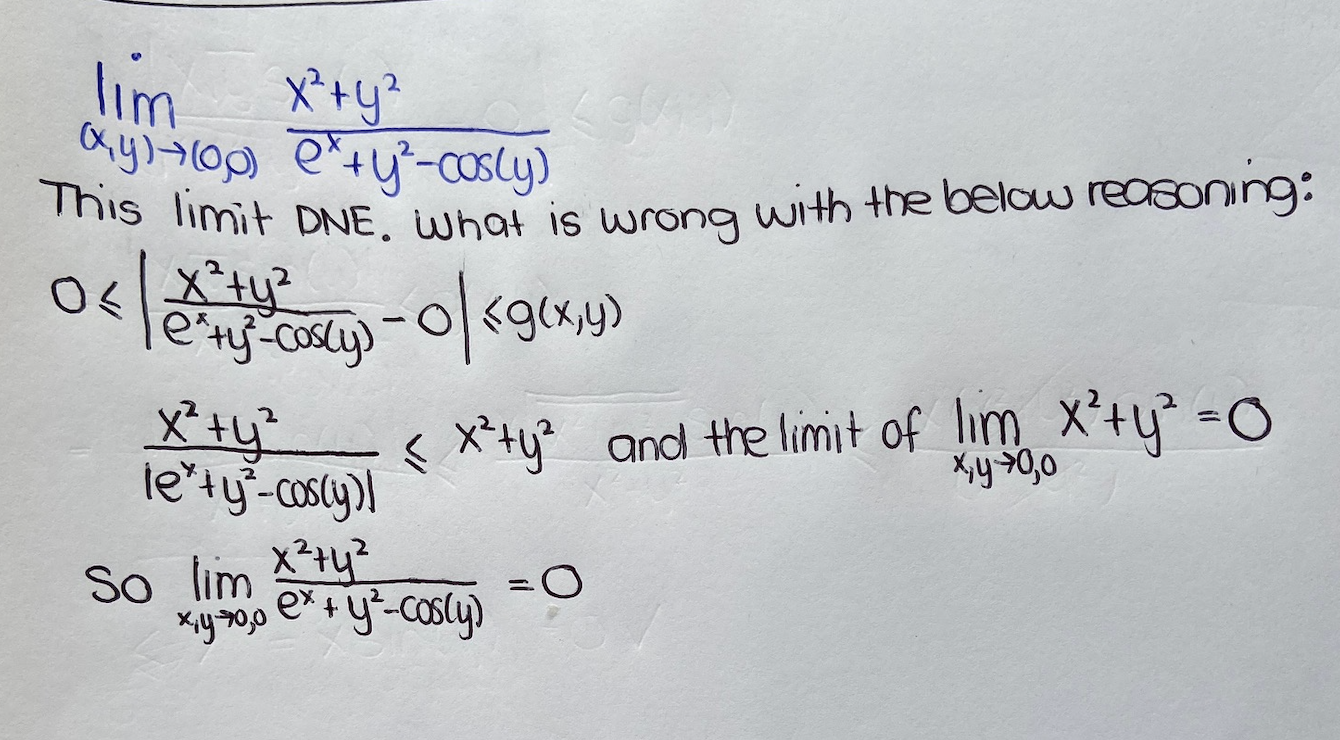 lim x²+y²
(x,y)→(0,0) e^x+y²-cos(y)
This limit DNE. What is wrong with the below reasoning:
0≤ | x²+y² / e^x+y²-cos(y) - 0 | ≤g(x,y)
x²+y² / |e^x+y²-cos(y)| ≤ x²+y² and the limit of lim x,y→0,0 x²+y² =0
So lim x,y→0,0 x²+y² / e^x+y²-cos(y) =0